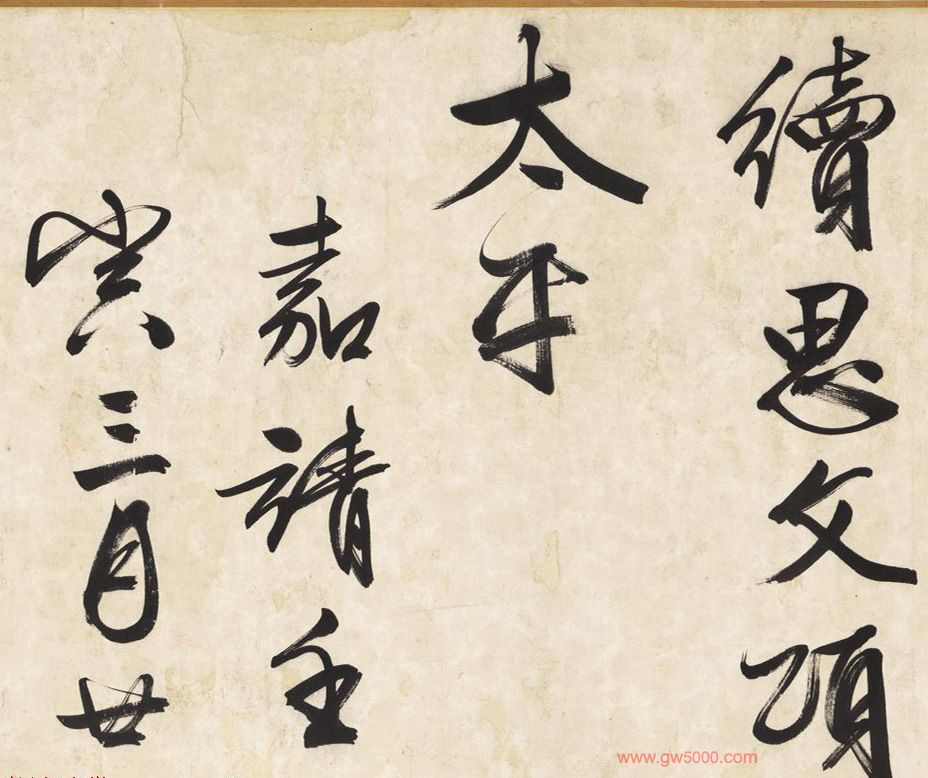 續思文頌
太平
嘉靖壬
寅三月廿
www.gw5000.com